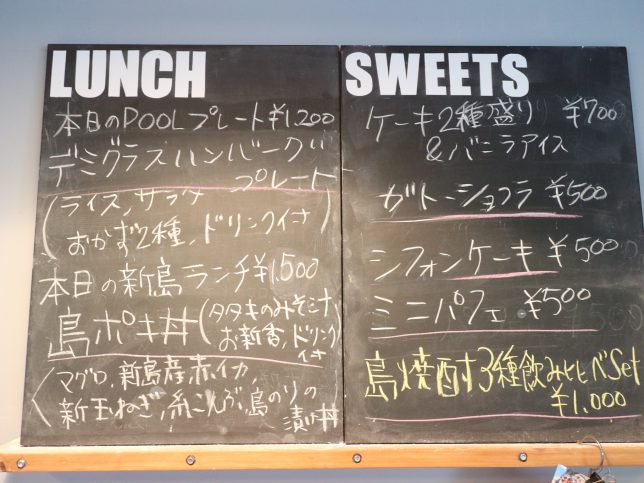 LUNCH
本日のPOOLプレート¥1,200
デミグラスハンバーグ
プレート
(ライス,サラダ
おかず2種,ドリンク付)
本日の新島ランチ¥1,500
島ポキ丼(タタキのみそミナ
お新香,ドリンク
付
〈マグロ,新島産赤イカ
新玉ねぎ,糸こんぶ,島のりの
漬け丼
SWEETS
ケーキ2種盛り ¥700
&バニラアイス
ガトーショコラ ¥500
シフォンケーキ ¥500
ミニパフェ ¥500
島焼酎3種飲み比べSet
¥1,000